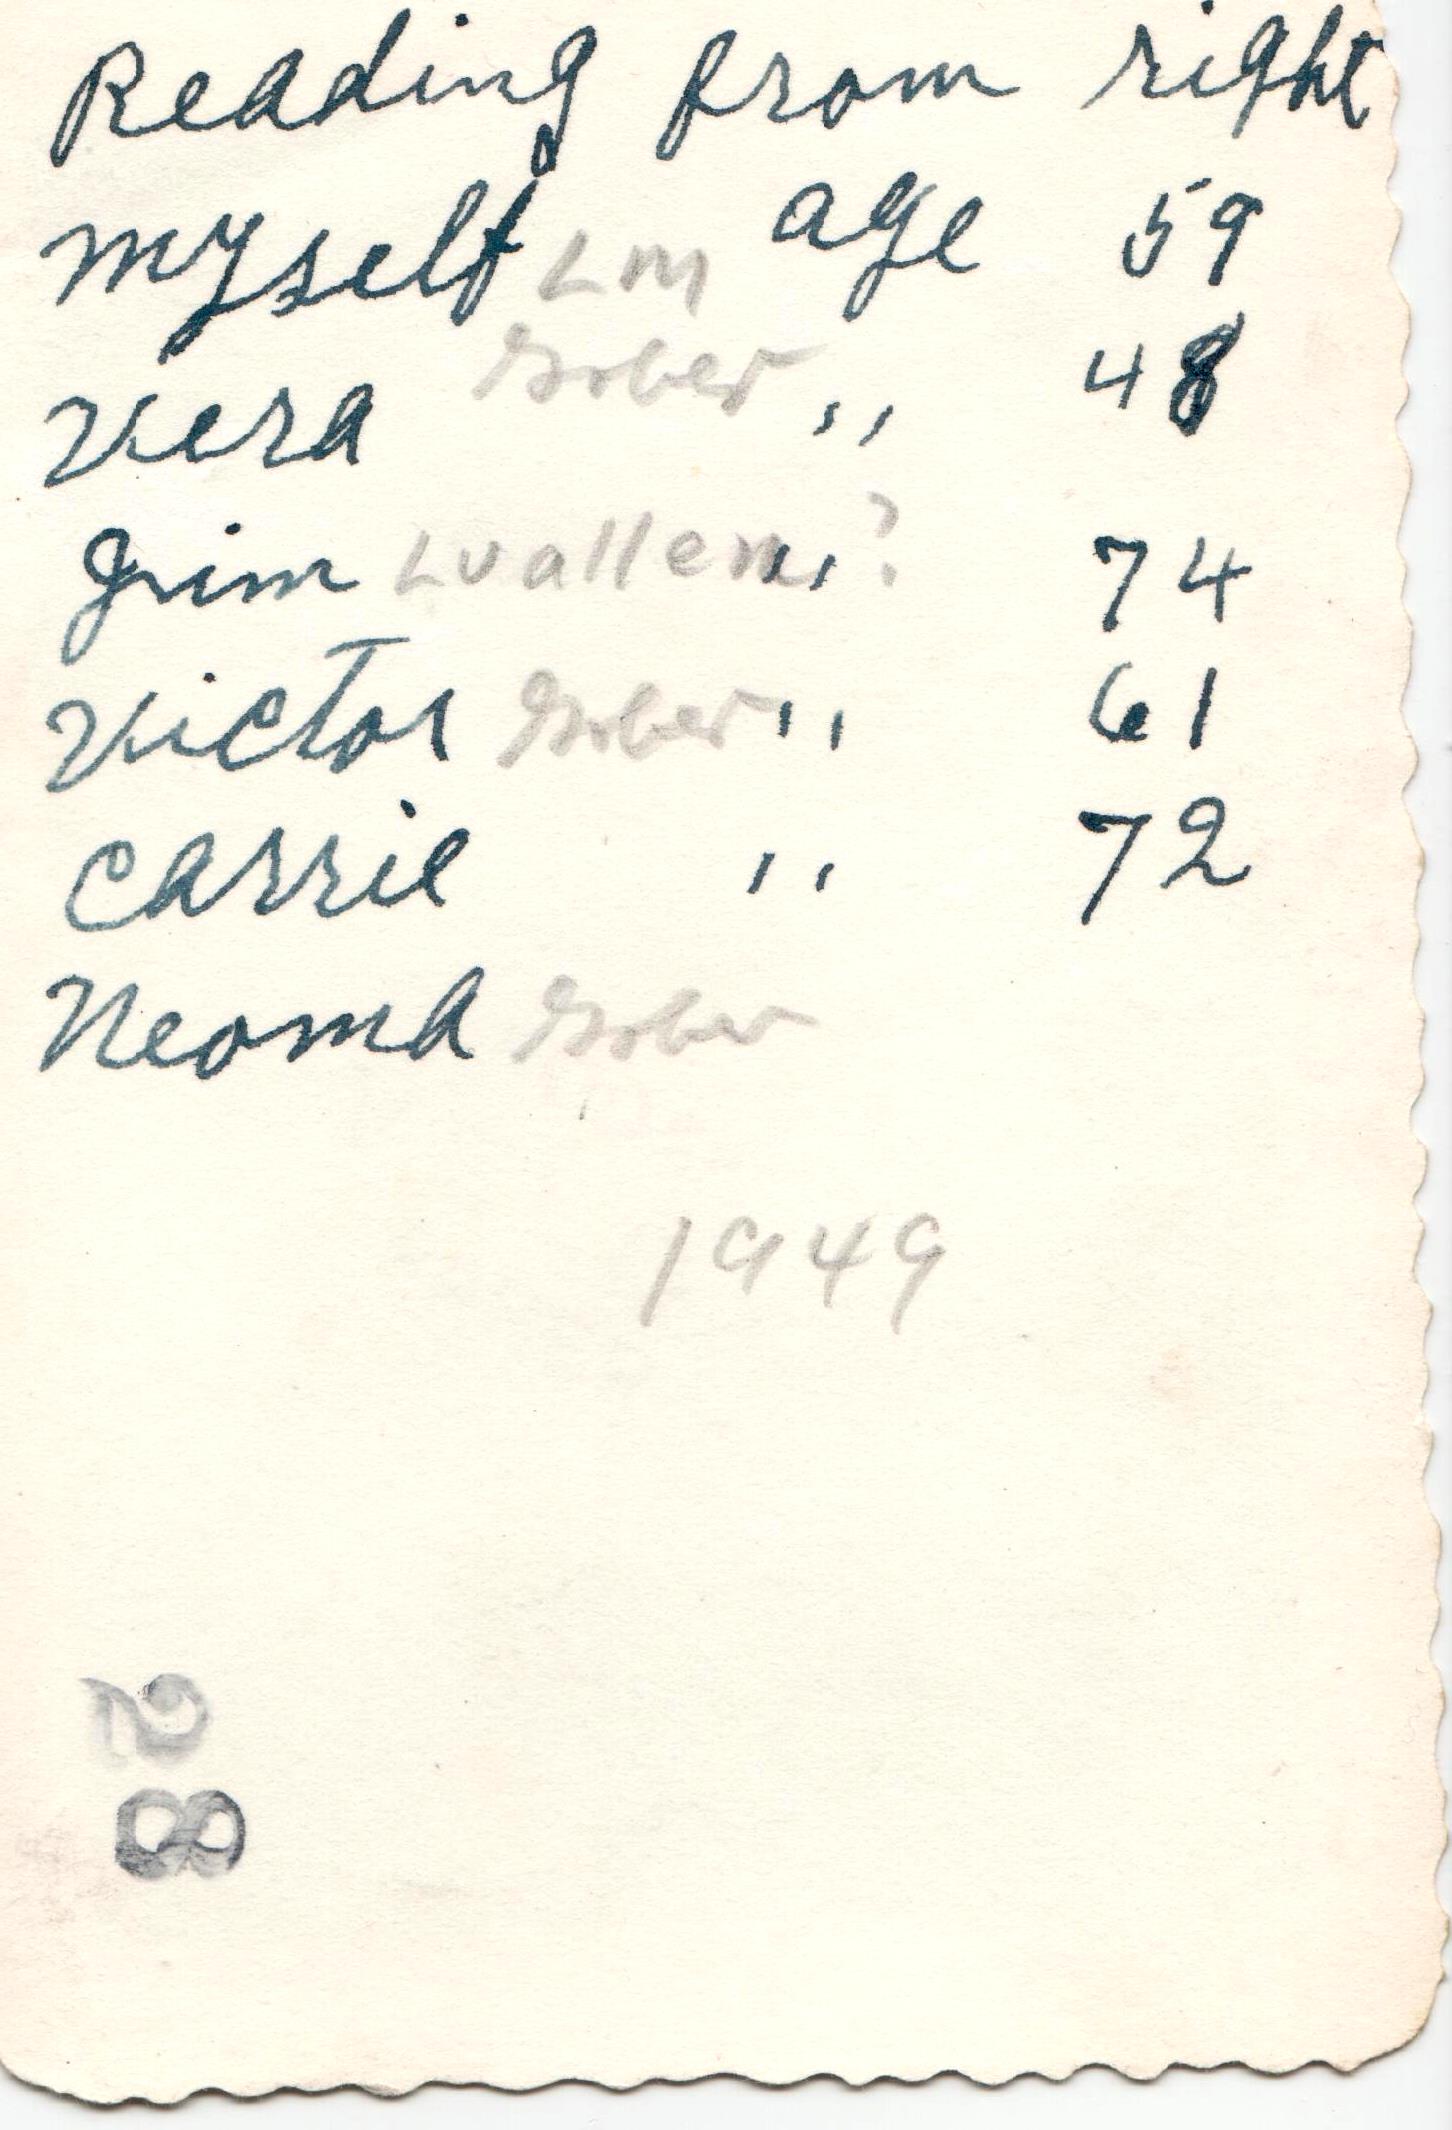 Reading from right
Myself LM age 59
Vera Gober " 48
Jim Luallen ? " 74
Victor Gober " 61
Carrie " 72
Neoma Gober
1949
28